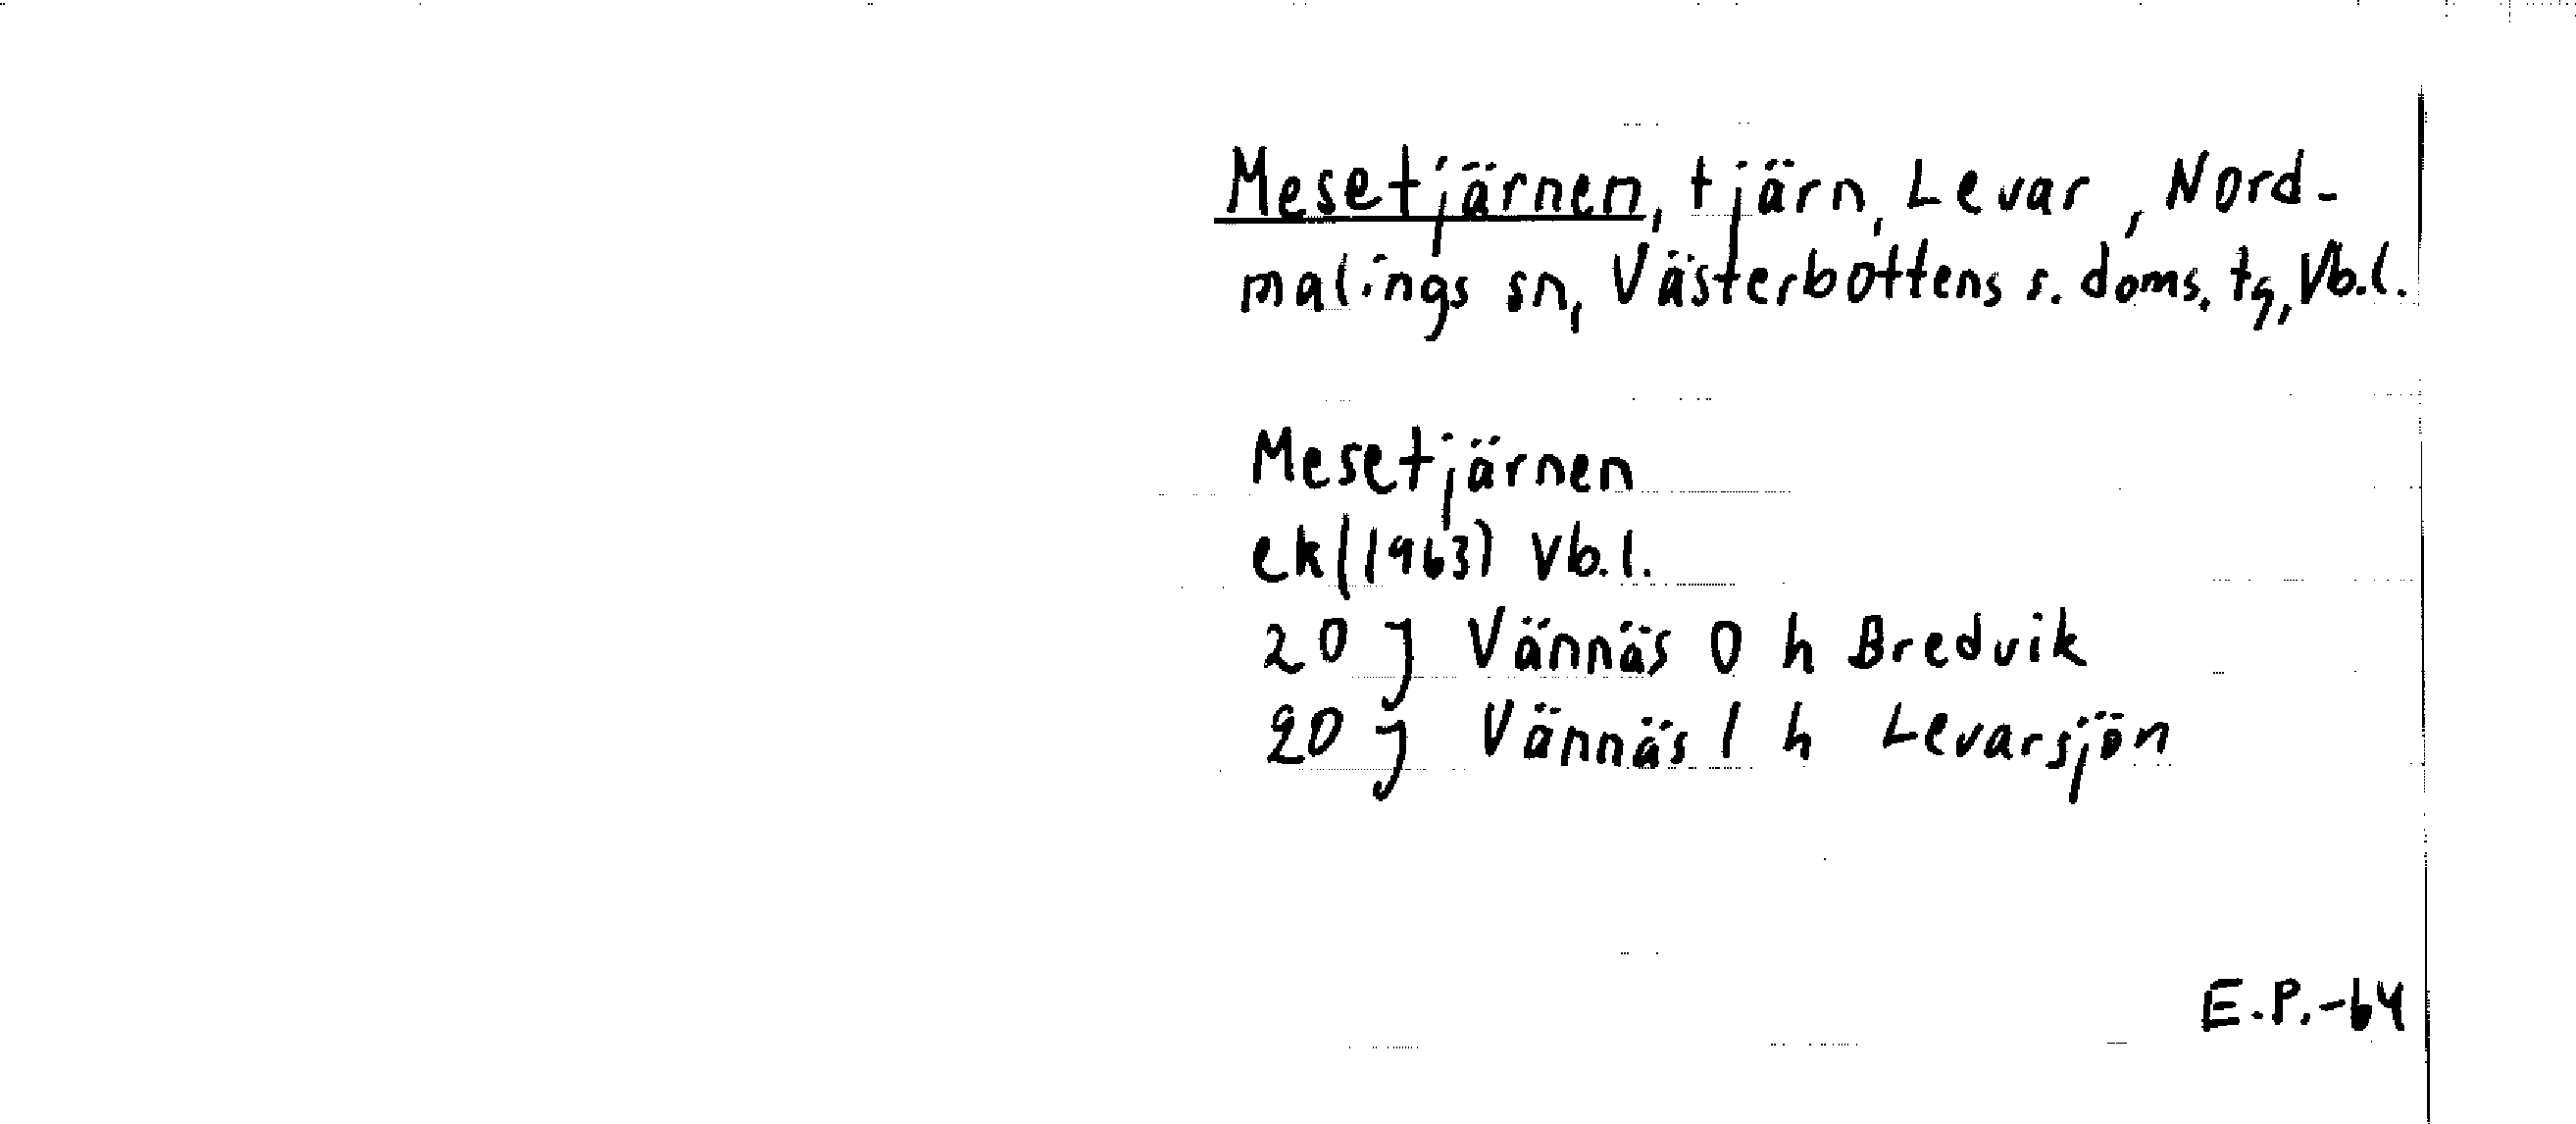 Mesetjärnen, tjärn, Levar, Nord-
malings sn, Västerbottens s. doms. tg, Vb.l.
Mesetjärnen
ek (1963) Vb.l.
20 J Vännäs 0 h Bredvik
20 J Vännäs 1 h Levarsjön
E.P.-64